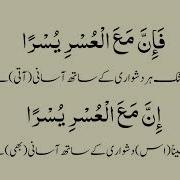 فَإِنَّ مَعَ الْعُسْرِ يُسْرًا
ہر دشواری کے ساتھ آسانی (آتی)
إِنَّ مَعَ الْعُسْرِ يُسْرًا
(اس) دشواری کے ساتھ آسانی (بھی)